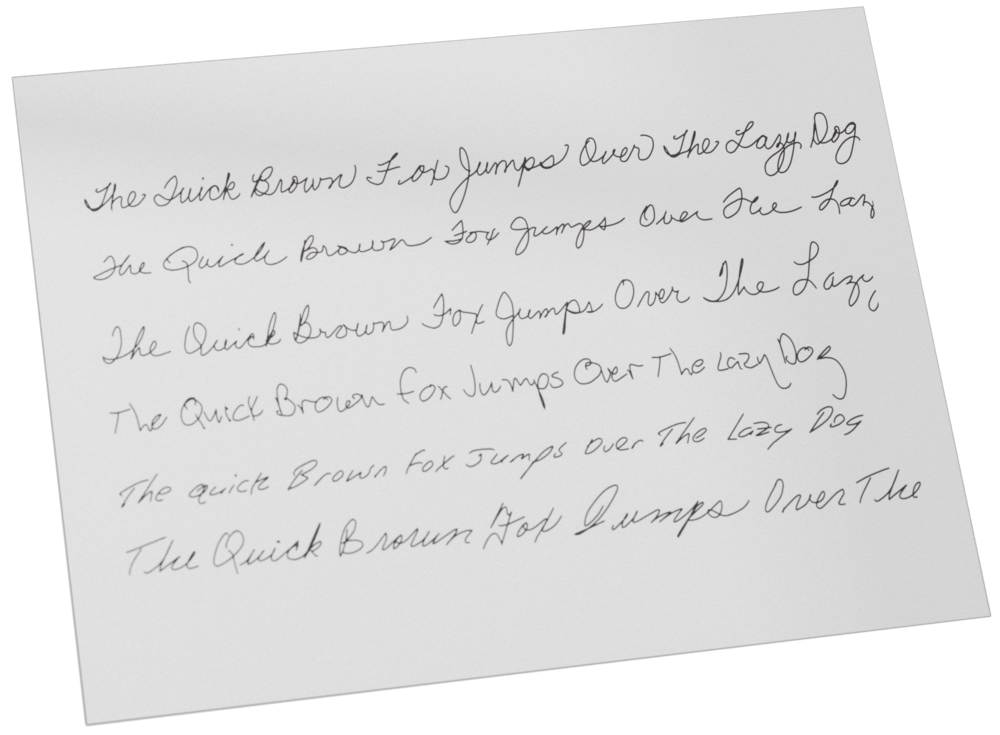 The Quick Brown Fox Jumps Over The Lazy Dog
The Quick Brown Fox Jumps Over The Laz
The Quick Brown Fox Jumps Over The Lazy
The Quick Brown Fox Jumps Over The Lazy Dog
The quick Brown Fox Jumps over The Lazy Dog
The Quick Brown Fox Jumps Over The